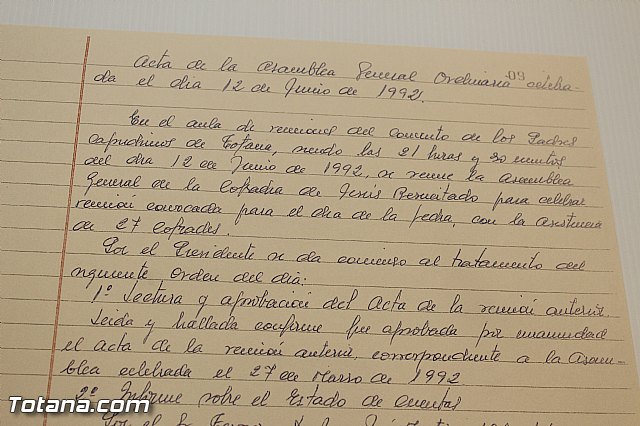 Acta de la Asamblea General Ordinaria celebra-
09
da el dia 12 de Junio de 1992.
En el aula de reuniones del convento de los Padres
Capuchinos de Totana, siendo las 21 horas y 30 minutos
del dia 12 de Junio de 1992, se reune la Asamblea
General de la Cofradia de Jesús Resucitado para celebrar
reunión convocada para el dia de la fecha, con la asistencia
de 27 Cofrades.
Por el Presidente se da comienzo al tratamiento del
siguiente orden del dia:
1º Lectura y aprobación del Acta de la reunión anterior.
Leida y hallada conforme fue aprobada por unanimidad
el acta de la reunión anterior, correspondiente a la Asam-
blea celebrada el 27 de Marzo de 1992
2º Informe sobre el Estado de Cuentas
Por el
Totana.com